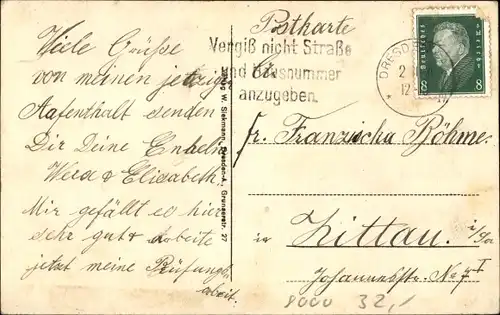 Postkarte
Viele Grüße
von meinen jetzigen
Aufenthalt senden
Dir Deine Enkeln
Elisabeth.
Mir gefällt es hier
sehr gut arbeite
jetzt meine Prüfungs
arbeit.
Verlag W. Siekmann, Dresden-A., Grunaerstr. 27
Vergiß nicht Straße
und Hausnummer
anzugeben.
DRESDEN
Deutsches Reich
8 8
Fr. Franziska Böhme.
in Zittau. i/Sa
Johannesstr. No 7 I
8000 32,-